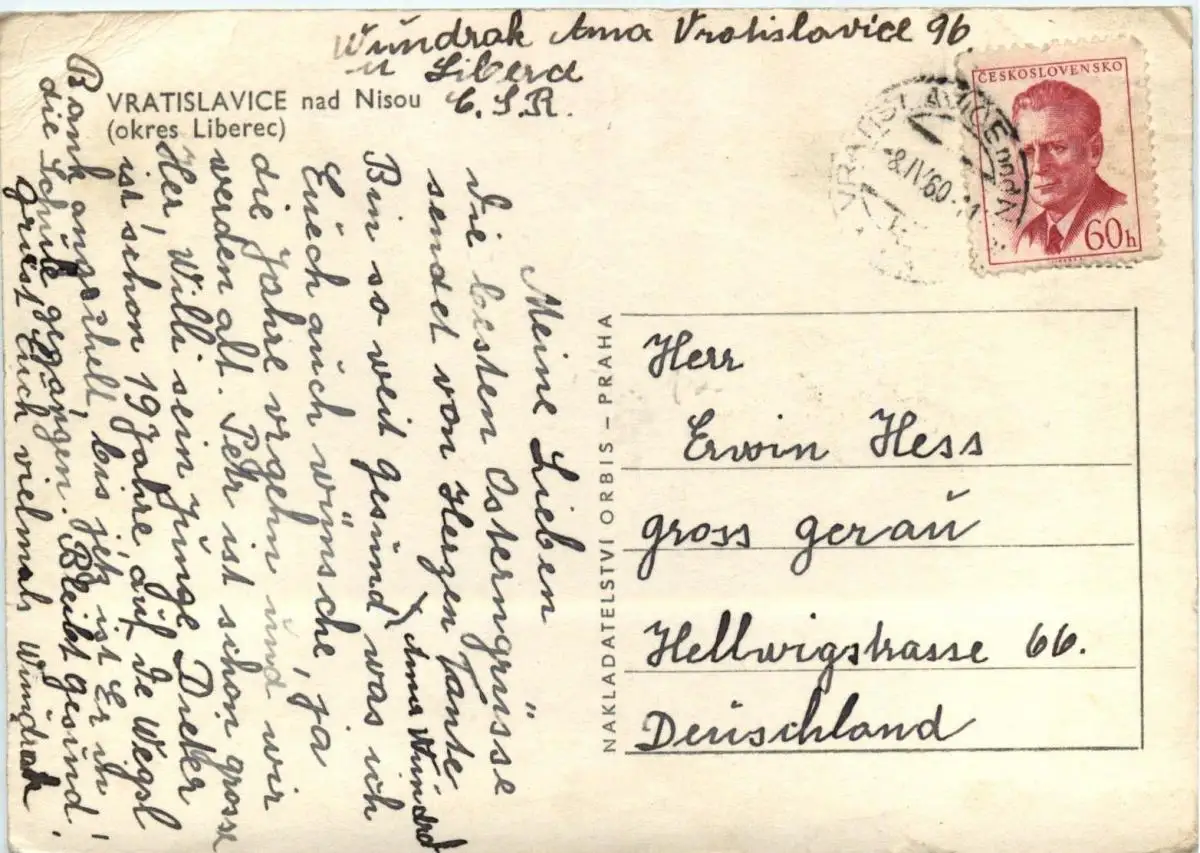 Wundrak Anna Vratislavice 96
u Liberce
Č.S.R.
VRATISLAVICE nad Nisou
(okres Liberec)
ČESKOSLOVENSKO
60h
VRATISLAVICE nad N.
-8.IV.60-
Meine Lieben
Die besten Osterngrüsse
sendet von Herzen Tante
Anna Wundrak
Bin so weit gesund was ich
Euech auch wümsche, ja
die Jahre vrgehn und wir
werden alt. Petr ist schon grosse
Her, Willi sein Junge Dieter
ist schon 19 Jahre, auf de Wegsl
Bank angsthelt, bis jetz ist Er in
die Schule gegangen. Bleibt gesund!
Griest Euch vielmals Wundrak
NAKLADATELSTVI ORBIS – PRAHA
Herr
Erwin Hess
Gross Gerau
Hellwigstrasse 66.
Deuschland